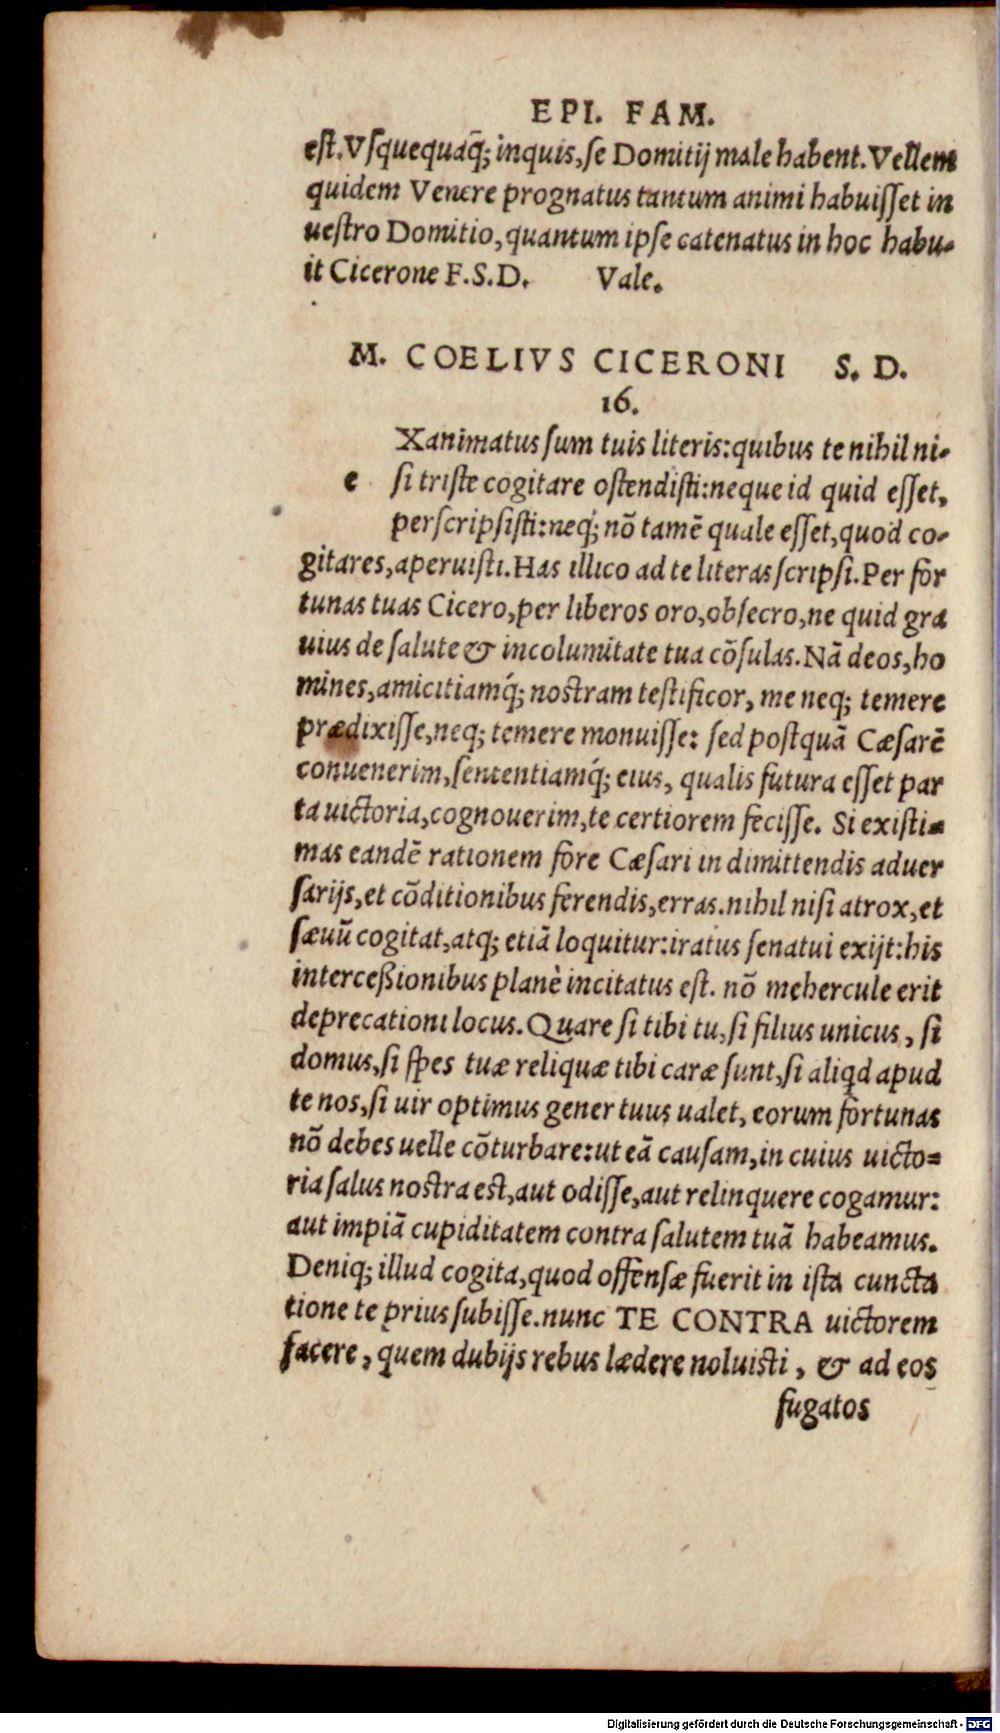 EPI. FAM.
est. Vsquequaq̃; inquis, se Domitij male habent. Vellem
quidem Venere prognatus tantum animi habuisset in
uestro Domitio, quantum ipse catenatus in hoc habu-
it Cicerone F. S. D. Vale.
M. COELIVS CICERONI S. D.
16.
Xanimatus sum tuis literis: quibus te nihil ni-
e si triste cogitare ostendisti: neque id quid esset,
perscripsisti: neq́; nõ tamẽ quale esset, quod co-
gitares, aperuisti. Has illico ad te literas scripsi. Per for
tunas tuas Cicero, per liberos oro, obsecro, ne quid gra
uius de salute & incolumitate tua cõsulas. Nã deos, ho
mines, amicitiamq́; nostram testificor, me neq; temere
prædixisse, neq; temere monuisse: sed postquã Cæsarẽ
conuenerim, sententiamq́; eius, qualis futura esset par
ta uictoria, cognouerim, te certiorem fecisse. Si existi-
mas eandẽ rationem fore Cæsari in dimittendis aduer
sarijs, et cõditionibus ferendis, erras. nihil nisi atrox, et
sæuũ cogitat, atq; etiã loquitur: iratus senatui exijt: his
interceßionibus planè incitatus est. nõ mehercule erit
deprecationi locus. Quare si tibi tu, si filius unicus, si
domus, si spes tuæ reliquæ tibi caræ sunt, si aliqd apud
te nos, si uir optimus gener tuus ualet, eorum fortunas
nõ debes uelle cõturbare: ut eã causam, in cuius uicto-
ria salus nostra est, aut odisse, aut relinquere cogamur:
aut impiã cupiditatem contra salutem tuã habeamus.
Deniq; illud cogita, quod offensæ fuerit in ista cuncta
tione te prius subisse. nunc TE CONTRA uictorem
facere, quem dubijs rebus lædere noluisti, & ad eos
fugatos
Digitalisierung gefördert durch die Deutsche Forschungsgemeinschaft - DFG